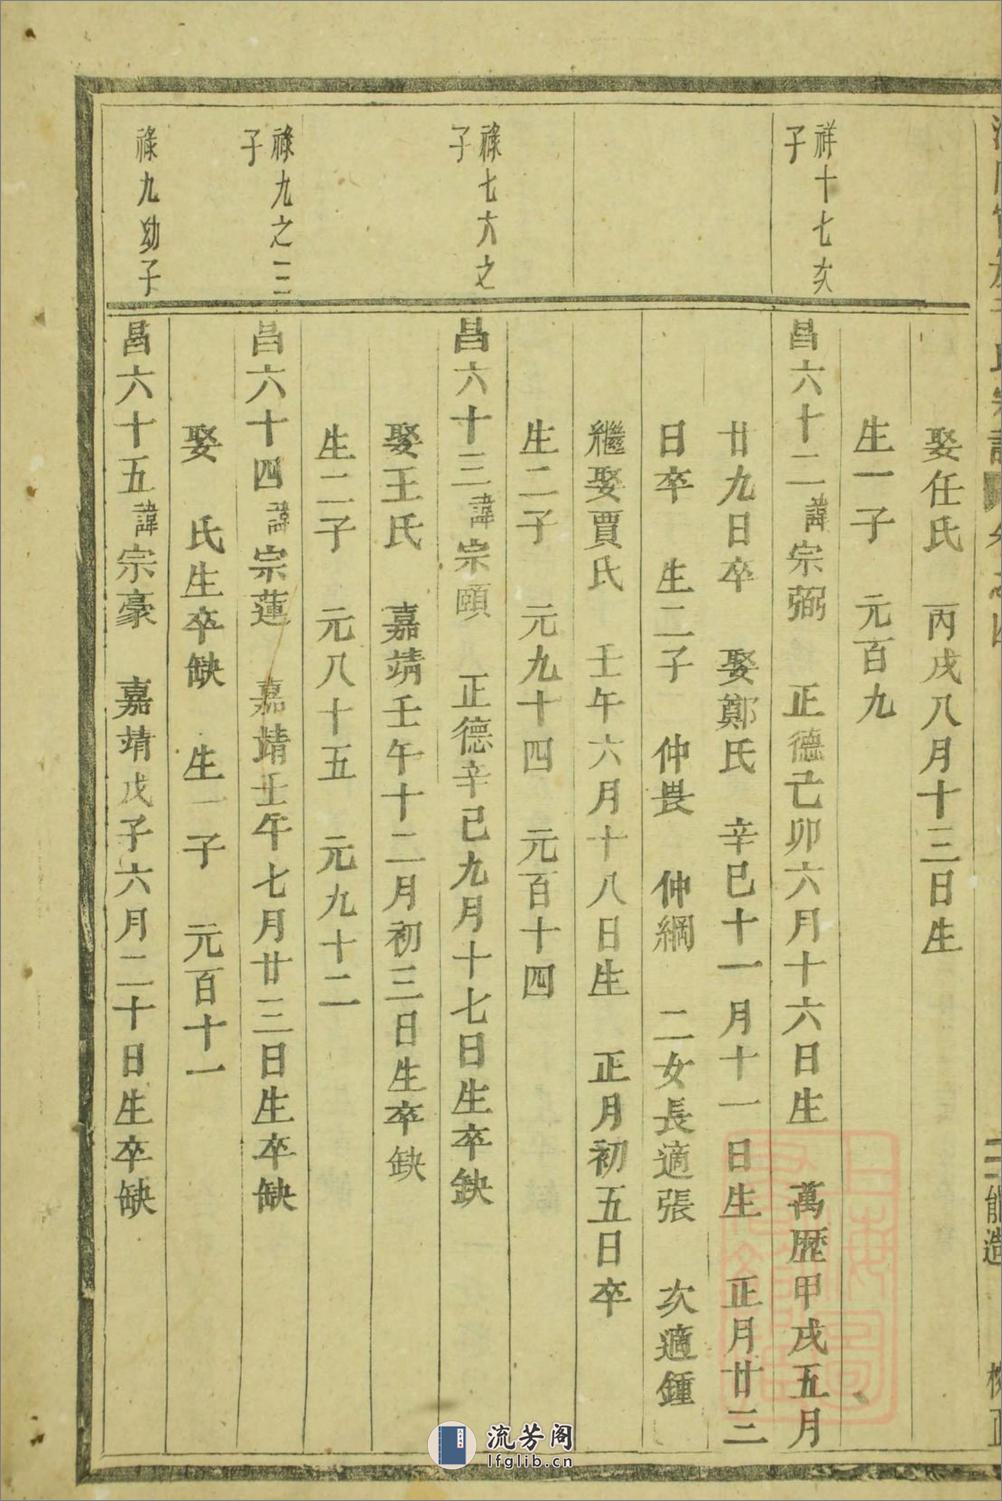 娶任氏 丙戌八月十三日生
生一子 元百九
祥十七次子
昌六十二諱宗弼 正德己卯六月十六日生 萬歷甲戌五月
廿九日卒 娶鄭氏 辛巳十一月十一日生 正月廿三
日卒 生二子 仲畏 仲綱 二女長適張 次適鍾
繼娶賈氏 壬午六月十八日生 正月初五日卒
生二子 元九十四 元百十四
祿七六之子
昌六十三諱宗頤 正德辛己九月十七日生卒缺
娶王氏 嘉靖壬午十二月初三日生卒缺
生二子 元八十五 元九十二
祿九之三子
昌六十四諱宗蓮 嘉靖壬午七月廿三日生卒缺
娶 氏生卒缺 生一子 元百十一
祿九幼子
昌六十五諱宗豪 嘉靖戊子六月二十日生卒缺
二能造
流芳阁
lfglib.cn